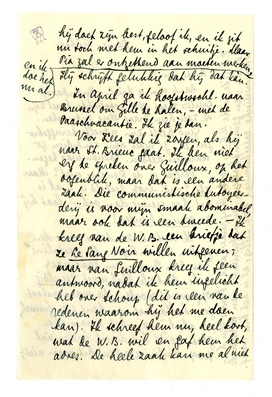 hij doet zijn best, geloof ik, en ik zit
nu toch met hem in het schuitje. Maar
Pia zal er ontzettend aan moeten werken!
en ik
doe het
nu al.
Hij schrijft gelukkig dat hij dat kan.
In April ga ik hoogstwschl. naar
Brussel om Gille te halen, - met de
Paaschvacantie. Ik zie je dan.
Voor Kees zal ik zorgen, als hij
naar St. Brieuc gaat. Ik ben niet
erg te spreken over Guilloux, op het
oogenblik, maar dat is een andere
zaak. Die communistische
derij is voor mijn smaak abominabel
maar ook dat is een tweede. - Ik
kreeg van de W.B. een briefje dat
ze Le Sang Noir willen uitgeven;
maar van Guilloux kreeg ik geen
antwoord, nadat ik hem ingelicht
heb over Schoup (dit is een van de
redenen waarom hij het me doen
kan). Ik schreef hem nu, heel kort,
wat de W.B. wil en gaf hem het
adres. De heele zaak kan me al niet